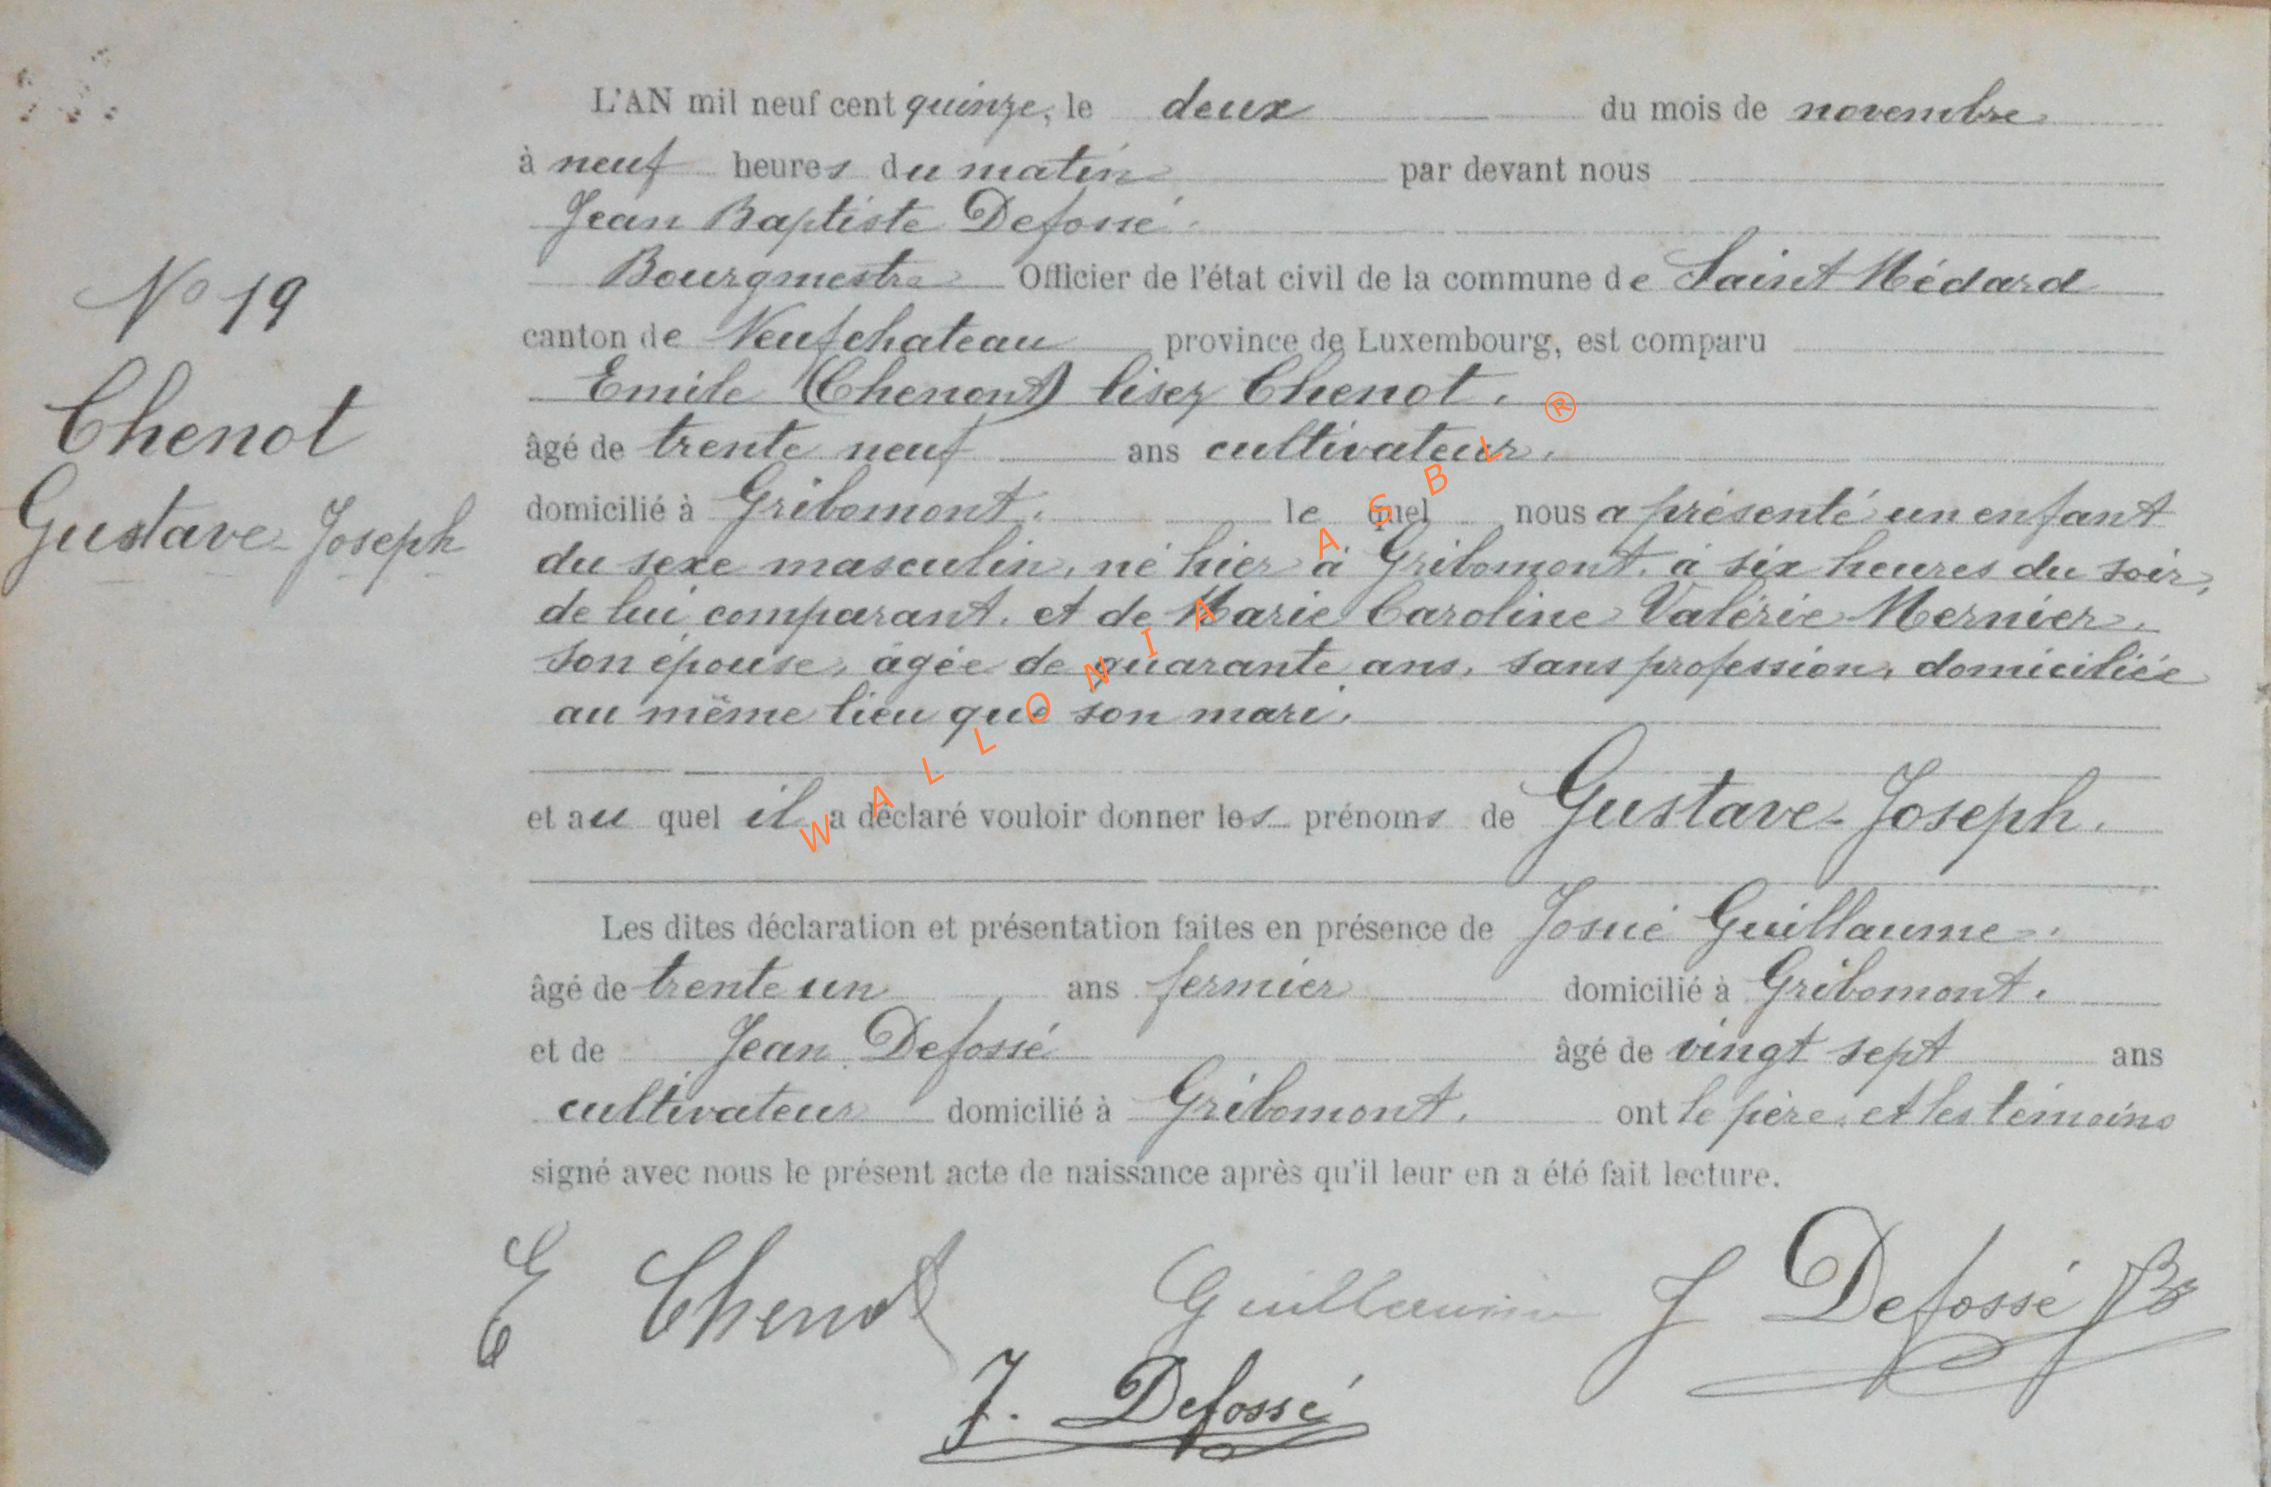 N° 19
Chenot
Gustave-Joseph
L'AN mil neuf cent quinze, le deux du mois de novembre
à neuf heures du matin par devant nous
Jean Baptiste Defossé.
Bourgmestre Officier de l'état civil de la commune de Saint Médard
canton de Neufchateau province de Luxembourg, est comparu
Emile (Chenont) lisez Chenot.
âgé de trente neuf ans cultivateur.
domicilié à Gribomont. le quel nous a présenté un enfant
du sexe masculin, né hier à Gribomont, à six heures du soir,
de lui comparant, et de Marie Caroline Valérie Mernier,
son épouse, âgée de quarante ans, sans profession, domiciliée
au même lieu que son mari.
et au quel il a déclaré vouloir donner les prénoms de Gustave-Joseph.
Les dites déclaration et présentation faites en présence de Josué Guillaume.
âgé de trente un ans fermier domicilié à Gribomont.
et de Jean Defossé âgé de vingt sept ans
cultivateur domicilié à Gribomont. ont le père et les témoins
signé avec nous le présent acte de naissance après qu'il leur en a été fait lecture.
E Chenot Guillaume J Defossé
J. Defossé
WALLONIA ASBL ®